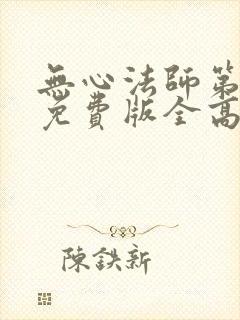 無心法師第
免費版全高
陳鉄新